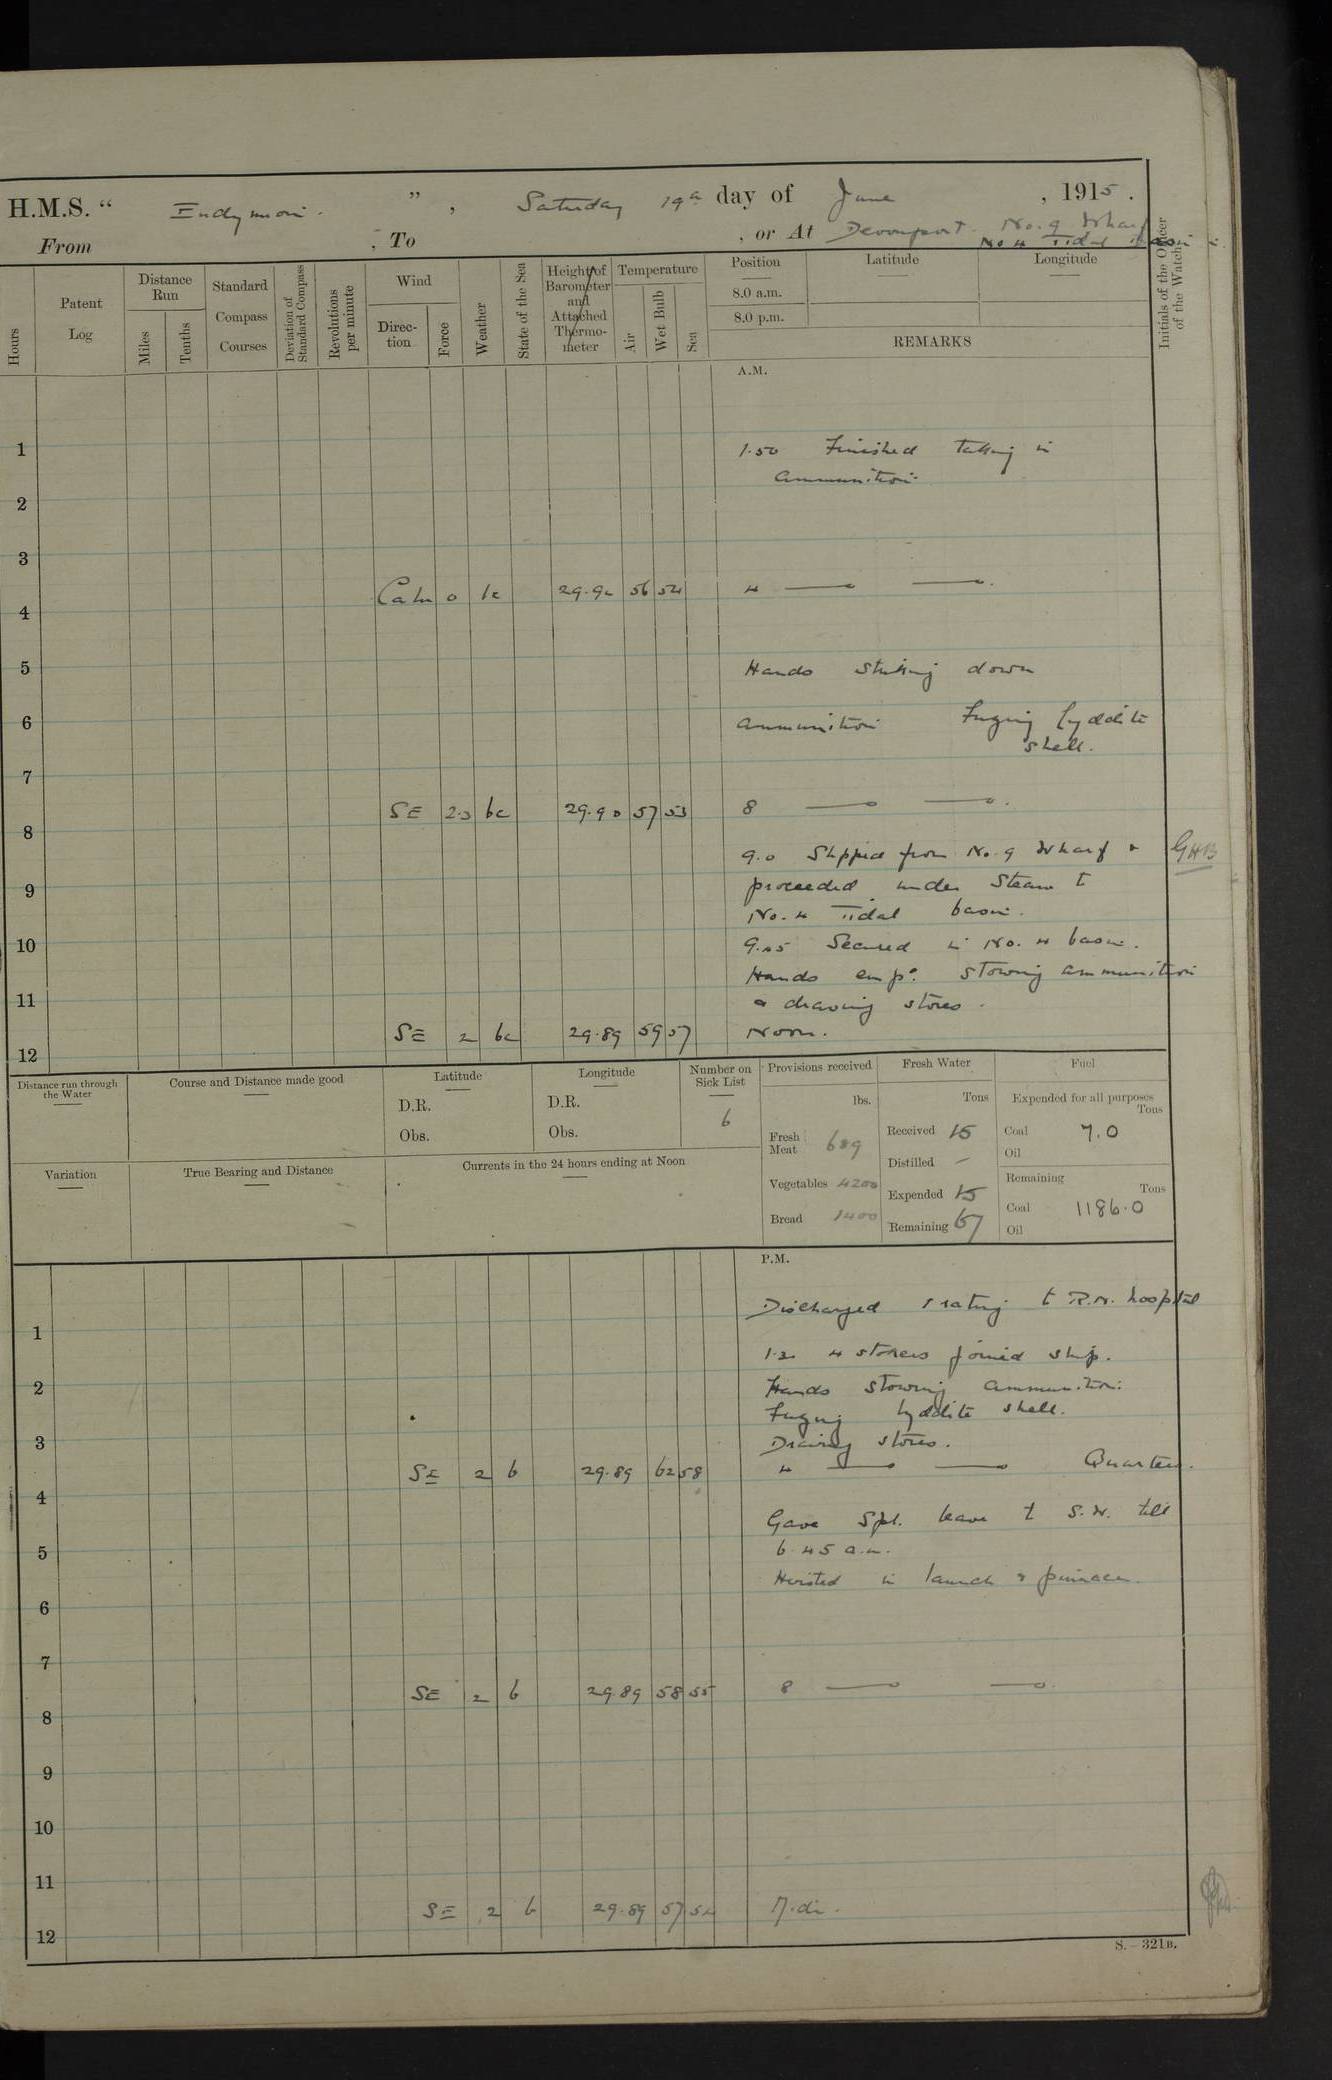 H.M.S. “ Endymion. ” , Saturday 19th day of June , 1915 .
From , To , or At Devonport. No. 9 Wharf
No 4 Tidal Basin
Hours
Patent Log
Distance Run
Miles
Tenths
Standard Compass Courses
Deviation of Standard Compass
Revolutions per minute
Wind
Direction
Force
Weather
State of the Sea
Height of Barometer and Attached Thermometer
Temperature
Air
Wet Bulb
Sea
Position
8.0 a.m.
8.0 p.m.
Latitude
Longitude
REMARKS
Initials of the Officer of the Watch
A.M.
1 1.50 Finished taking in
ammunition.
2
3
Calm 0 29.92 56 54 4
4
5 Hands striking down
6 ammunition Fuzing lyddite
shell.
7
SE 2.3 bc 29.90 57 53 8
8
9.0 Slipped from No. 9 Wharf & GHB
9 proceeded under steam to
No. 4 Tidal basin.
10 9.45 Secured in No. 4 basin.
Hands emp: stowing ammunition
11 & drawing stores.
SE 2 bc 29.89 59 57 Noon.
12
Distance run through the Water
Course and Distance made good
Latitude
D.R.
Obs.
Longitude
D.R.
Obs.
Number on Sick List
6
Provisions received
lbs.
Fresh Meat 689
Vegetables 4200
Bread 1400
Fresh Water
Tons
Received 15
Distilled –
Expended 15
Remaining 67
Fuel
Expended for all purposes
Tons
Coal 7.0
Oil
Remaining
Tons
Coal 1186.0
Oil
Variation
True Bearing and Distance
Currents in the 24 hours ending at Noon
P.M.
Discharged 1 rating to R.N. hospital
1
1.30 4 stokers joined ship.
2 Hands stowing ammunition.
Fuzing lyddite shell.
3 Drawing stores.
SE 2 b 29.89 62 58 4 Quarters.
4
Gave Spl. leave to S.W. till
5 6.45 a.m.
Hoisted in launch & pinnace.
6
7
SE 2 b 29.89 58 55 8
8
9
10
11
SE 2 b 29.89 57 54 Mdt.
12
S.—321B.